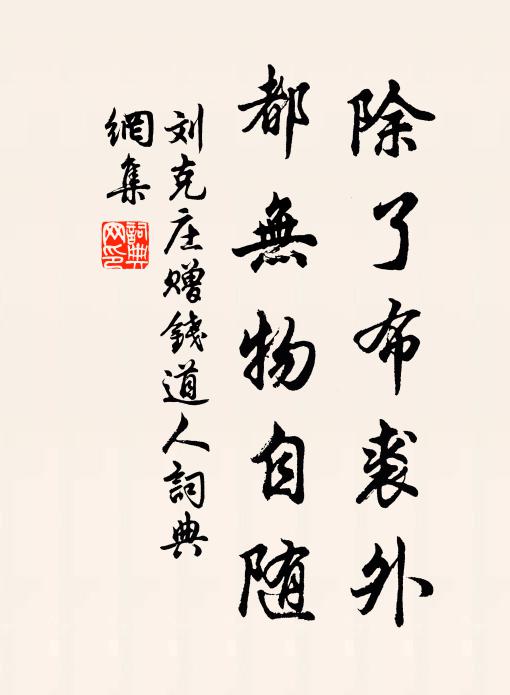 除了布裘外
都無物自随
刘克庄赠錢道人詞典
網集
詞典
网印